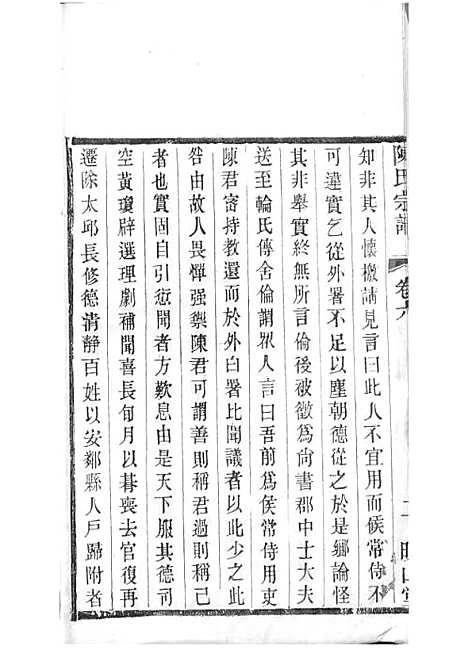 陳氏宗譜 卷六 二
知非其人懷檄請見言曰此人不宜用而侯常侍不
可違寔乞從外署不足以塵朝德從之於是鄉論怪
其非舉寔終無所言倫後被徵為尚書郡中士大夫
送至輪氏傳舍倫謂眾人言曰吾前為侯常侍用吏
陳君密持教還而於外白署比聞議者以此少之此
咎由故人畏憚强禦陳君可謂善則稱君過則稱己
者也寔固自引愆聞者方歎息由是天下服其德司
空黃瓊辟選理劇補聞喜長旬月以朞喪去官復再
遷除太邱長修德清靜百姓以安鄰縣人戶歸附者